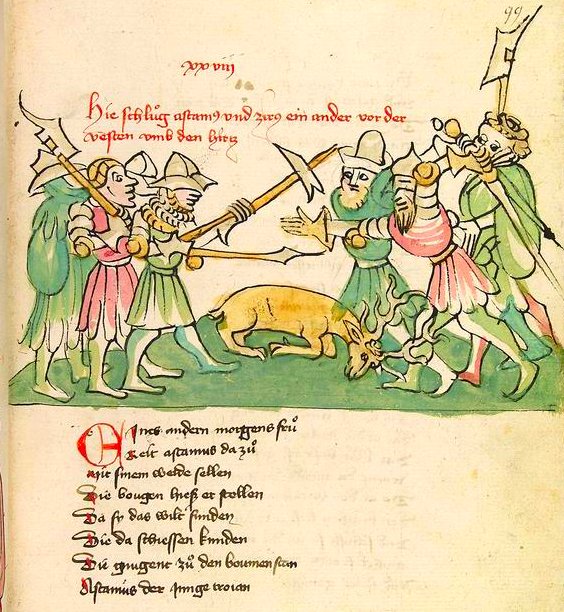 99
xxviij
Hie schlůg astamꝰ vnd zirꝰ ein ander vor der
vesten vmb den hirtz
Eines andern morgens frů
Reit astamus da zů
Mit sinem weide sellen
Die bougen hieß er stellen
Da sy das wilt funden
Die da schiessen kunden
Die giengent zů den boumen stan
Astamus der junge troian